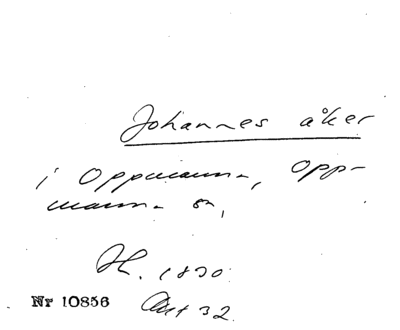 Johannes åker
i Oppmanna, Opp-
manna sn,
1830.
Nr 10856
Akt 32